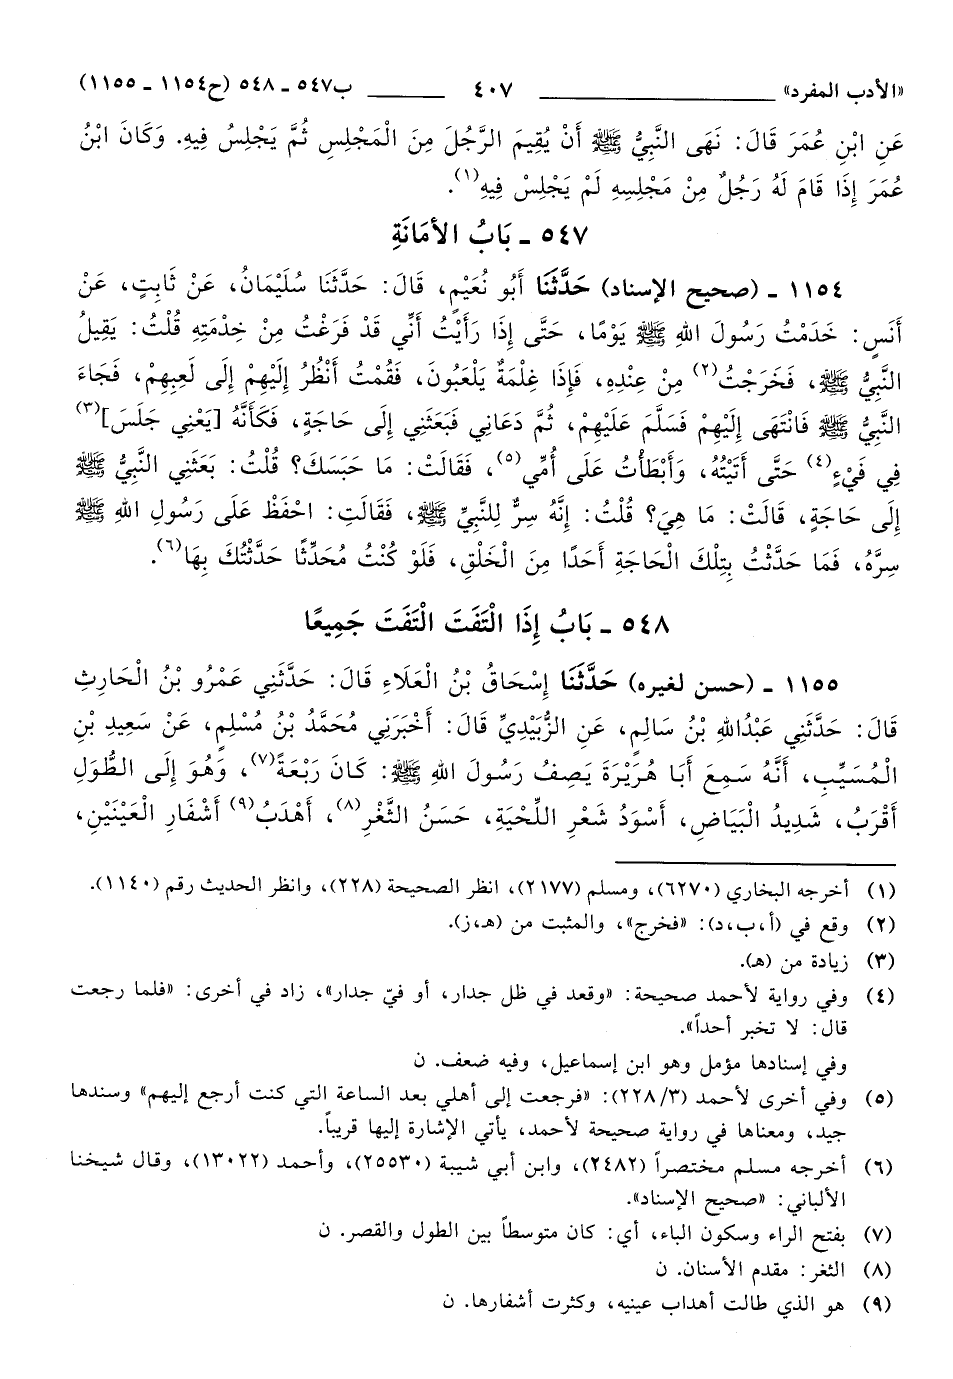 «الأدب المفرد» ٤٠٧ ب٥٤٧ ـ ٥٤٨ (ح١١٥٤ ـ ١١٥٥)
عَنِ ابْنِ عُمَرَ قَالَ: نَهَى النَّبِيُّ ﷺ أَنْ يُقِيمَ الرَّجُلَ مِنَ الْمَجْلِسِ ثُمَّ يَجْلِسُ فِيهِ. وَكَانَ ابْنُ
عُمَرَ إِذَا قَامَ لَهُ رَجُلٌ مِنْ مَجْلِسِهِ لَمْ يَجْلِسْ فِيهِ(١).
٥٤٧ ـ بَابُ الأمَانَةِ
١١٥٤ ـ (صحيح الإسناد) حَدَّثَنَا أَبُو نُعَيْمٍ، قَالَ: حَدَّثَنَا سُلَيْمَانُ، عَنْ ثَابِتٍ، عَنْ
أَنَسٍ: خَدَمْتُ رَسُولَ اللهِ ﷺ يَوْمًا، حَتَّى إِذَا رَأَيْتُ أَنِّي قَدْ فَرَغْتُ مِنْ خِدْمَتِهِ قُلْتُ: يَقِيلُ
النَّبِيُّ ﷺ، فَخَرَجْتُ(٢) مِنْ عِنْدِهِ، فَإِذَا غِلْمَةٌ يَلْعَبُونَ، فَقُمْتُ أَنْظُرُ إِلَيْهِمْ إِلَى لَعِبِهِمْ، فَجَاءَ
النَّبِيُّ ﷺ فَانْتَهَى إِلَيْهِمْ فَسَلَّمَ عَلَيْهِمْ، ثُمَّ دَعَانِي فَبَعَثَنِي إِلَى حَاجَةٍ، فَكَأَنَّهُ [يَعْنِي جَلَسَ](٣)
فِي فَيْءٍ(٤) حَتَّى أَتَيْتُهُ، وَأَبْطَأْتُ عَلَى أُمِّي(٥)، فَقَالَتْ: مَا حَبَسَكَ؟ قُلْتُ: بَعَثَنِي النَّبِيُّ ﷺ
إِلَى حَاجَةٍ، قَالَتْ: مَا هِيَ؟ قُلْتُ: إِنَّهُ سِرٌّ لِلنَّبِيِّ ﷺ، فَقَالَتِ: احْفَظْ عَلَى رَسُولِ اللهِ ﷺ
سِرَّهُ، فَمَا حَدَّثْتُ بِتِلْكَ الْحَاجَةِ أَحَدًا مِنَ الْخَلْقِ، فَلَوْ كُنْتُ مُحَدِّثًا حَدَّثْتُكَ بِهَا(٦).
٥٤٨ ـ بَابُ إِذَا الْتَفَتَ الْتَفَتَ جَمِيعًا
١١٥٥ ـ (حسن لغيره) حَدَّثَنَا إِسْحَاقُ بْنُ الْعَلَاءِ قَالَ: حَدَّثَنِي عَمْرُو بْنُ الْحَارِثِ
قَالَ: حَدَّثَنِي عَبْدُاللهِ بْنُ سَالِمٍ، عَنِ الزُّبَيْدِيِّ قَالَ: أَخْبَرَنِي مُحَمَّدُ بْنُ مُسْلِمٍ، عَنْ سَعِيدِ بْنِ
الْمُسَيِّبِ، أَنَّهُ سَمِعَ أَبَا هُرَيْرَةَ يَصِفُ رَسُولَ اللهِ ﷺ: كَانَ رَبْعَةً(٧)، وَهُوَ إِلَى الطُّوَلِ
أَقْرَبُ، شَدِيدُ الْبَيَاضِ، أَسْوَدُ شَعْرِ اللِّحْيَةِ، حَسَنُ الثَّغْرِ(٨)، أَهْدَبُ(٩) أَشْفَارِ الْعَيْنَيْنِ،
(١) أخرجه البخاري (٦٢٧٠)، ومسلم (٢١٧٧)، انظر الصحيحة (٢٢٨)، وانظر الحديث رقم (١١٤٠).
(٢) وقع في (أ،ب،د): «فخرج»، والمثبت من (هـ،ز).
(٣) زيادة من (هـ).
(٤) وفي رواية لأحمد صحيحة: «وقعد في ظل جدار، أو فيّ جدار»، زاد في أخرى: «فلما رجعت
قال: لا تخبر أحداً».
وفي إسنادها مؤمل وهو ابن إسماعيل، وفيه ضعف. ن
(٥) وفي أخرى لأحمد (٢٢٨/٣): «فرجعت إلى أهلي بعد الساعة التي كنت أرجع إليهم» وسندها
جيد، ومعناها في رواية صحيحة لأحمد، يأتي الإشارة إليها قريباً.
(٦) أخرجه مسلم مختصراً (٢٤٨٢)، وابن أبي شيبة (٢٥٥٣٠)، وأحمد (١٣٠٢٢)، وقال شيخنا
الألباني: «صحيح الإسناد».
(٧) بفتح الراء وسكون الباء، أي: كان متوسطاً بين الطول والقصر. ن
(٨) الثغر: مقدم الأسنان. ن
(٩) هو الذي طالت أهداب عينيه، وكثرت أشفارها. ن